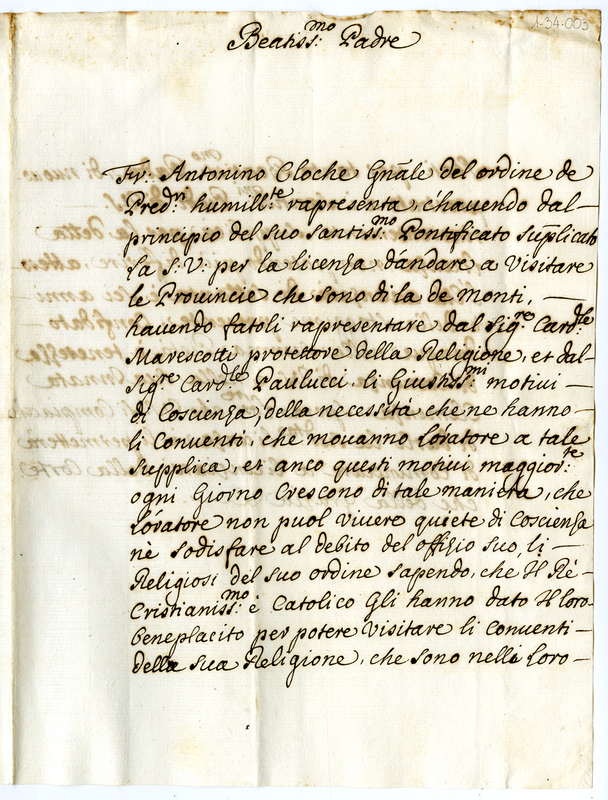 1-34-003
Beatiss:mo Padre
Fr: Antonino Cloche Gnãle del ordine de
Pred:ri humill:te rapresenta, c'havendo dal-
principio del suo santiss:mo Pontificato suplicato
la S: V: per la licenza d'andare a visitare
le Provincie che sono di la de monti, -
havendo fatoli rapresentare dal Sig:re Card:le
Marescotti protettore della Religione, et dal-
Sig:re Card:le Paulucci, li Giustiss:mi motivi -
di Coscienza, della necessità che ne hanno-
li Conventi, che movanno lo'ratore a tale
supplica, et anco questi motivi maggior:te
ogni Giorno Crescono di tale maniera, che
lo'ratore non puol vivere quiete di Coscienza
nè sodisfare al debito del offizio suo, li -
Religiosi del suo ordine sapendo, che Il Rè-
Cristianiss:mo è Catolico Gli hanno dato Il loro-
beneplacito per potere visitare li Conventi -
della sua Religione, che sono nelli loro -